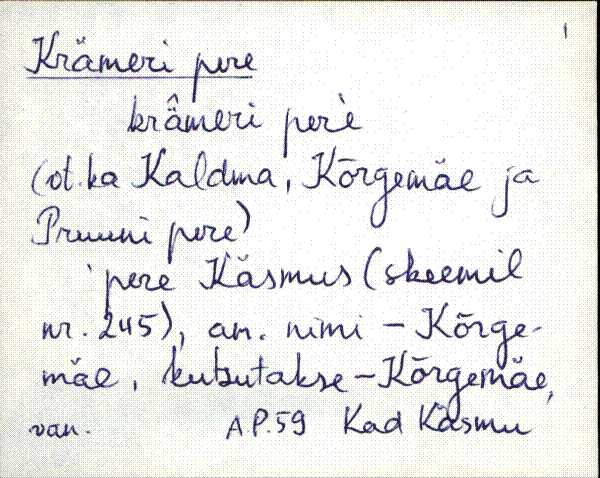 1
Krämeri pere
krä̂meri perè
(vt. ka Kaldma, Kõrgemäe ja
Pruuni pere)
pere Käsmus (skeemil
nr. 245), am. nimi – Kõrge-
mäe, kutsutakse – Kõrgemäe,
van. A.P. 59 Kad Käsmu